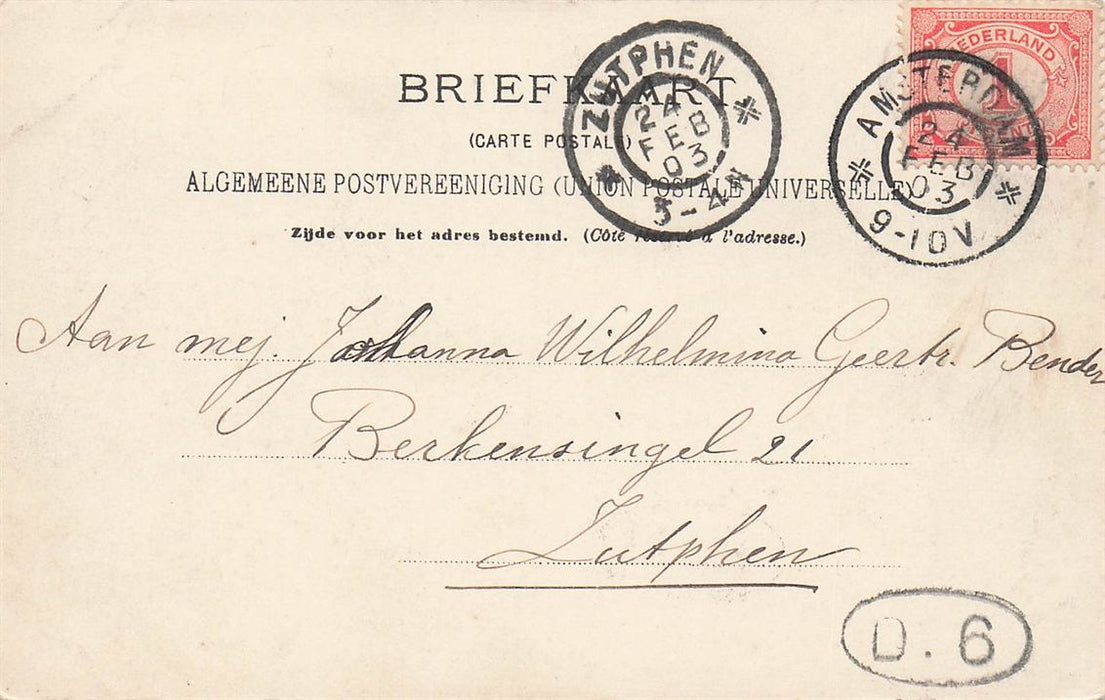 BRIEFKAART
(CARTE POSTALE)
ALGEMEENE POSTVEREENIGING (UNION POSTALE UNIVERSELLE)
Zijde voor het adres bestemd. (Côté réservé à l'adresse.)
ZUTPHEN
24
FEB
03
3-4N
NEDERLAND
1
CENT
AMSTERDAM
24
FEB
03
9-10V
Aan mej. Johanna Wilhelmina Geertr. Bender
Berkensingel 21
Zutphen
D. 6